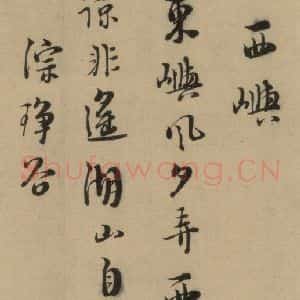 西嶼
東嶼風夕弄西
諒非遙湖山自
淙琤谷
Shufawang.CN